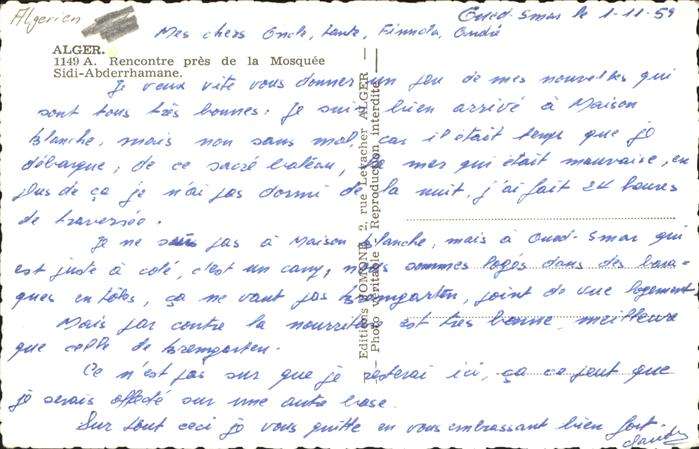 Algerien
Oued-Smar le 1-11-59
Mes chers Oncle, tante, Finnola, André
ALGER.
1149 A. Rencontre près de la Mosquée
Sidi-Abderrhamane.
Je veux vite vous donner un peu de mes nouvelles qui
sont tous très bonnes: Je suis bien arrivé à Maison
Blanche, mais non sans mal, car il était temps que je
débarque, de ce sacré bateau, la mer qui était mauvaise, en
plus de ça je n'ai pas dormi de la nuit, j'ai fait 24 heures
de traversée.
Je ne suis pas à Maison Blanche, mais à Oued-Smar qui
est juste à coté, c'est un camp, nous sommes logés dans des bara-
ques en tôles, ça ne vaut pas Bremgarten, point de vue logement
Mais par contre la nourriture est très bonne, meilleure
que celle de Bremgarten.
Ce n'est pas sur que je resterai ici, ça ce peut que
je serais affecté sur une autre base.
Sur tout ceci je vous quitte en vous embrassant bien fort.
Editions 2, rue ALGER
Photo véritable Reproduction interdite